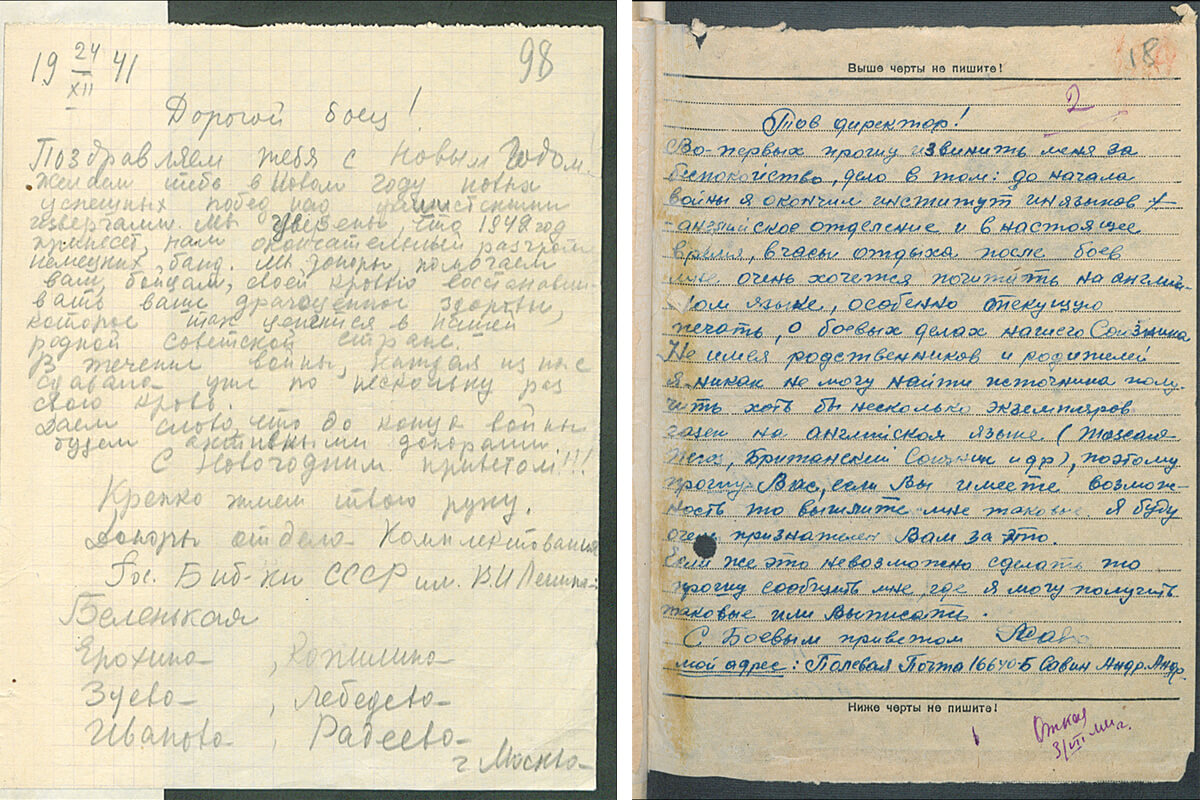 19 24/XII 41
98
Дорогой боец!
Поздравляем тебя с Новым Годом.
Желаем тебе в Новом году новых
успешных побед над фашистскими
извергами. Мы уверены что 1942 год
принесет нам окончательный разгром
немецких банд. Мы, доноры, помогаем
вам, бойцам, своей кровью восстанавли-
вать ваше драгоценное здоровье,
которое так ценится в нашей
родной советской стране.
В течении войны, каждая из нас
сдавала уже по нескольку раз
свою кровь.
Даем слово, что до конца войны
будем активными донорами
С Новогодним приветом!!!
Крепко жмем твою руку.
Доноры отдела Комплектования
Гос. Биб-ки СССР им. В.И Ленина:
Беленькая
Ерохина, Копилина
Зуева, Лебедева
Иванова, Радеева
г Москва
18
Выше черты не пишите!
2
Тов директор!
Во-первых прошу извинить меня за
беспокойство, дело в том: до начала
войны я окончил институт ин.языков
английское отделение и в настоящее
время, в часы отдыха после боев
мне очень хочется почитать на англий-
ском языке, особенно текущую
печать, о боевых делах нашего Союзника
Не имея родственников и родителей
я никак не могу найти источника полу-
чить хоть бы несколько экземпляров
газет на английском языке (
Британский Союзник и др), поэтому
прошу Вас, если Вы имеете возмож-
ность то вышлите мне таковые. Я буду
очень признателен Вам за это.
Если же это невозможно сделать то
прошу сообщить мне, где я могу получить
таковые или выписать.
С Боевым приветом
мой адрес: Полевая Почта 16640-Б Савин Андр. Андр.
Ниже черты не пишите!
3/VII